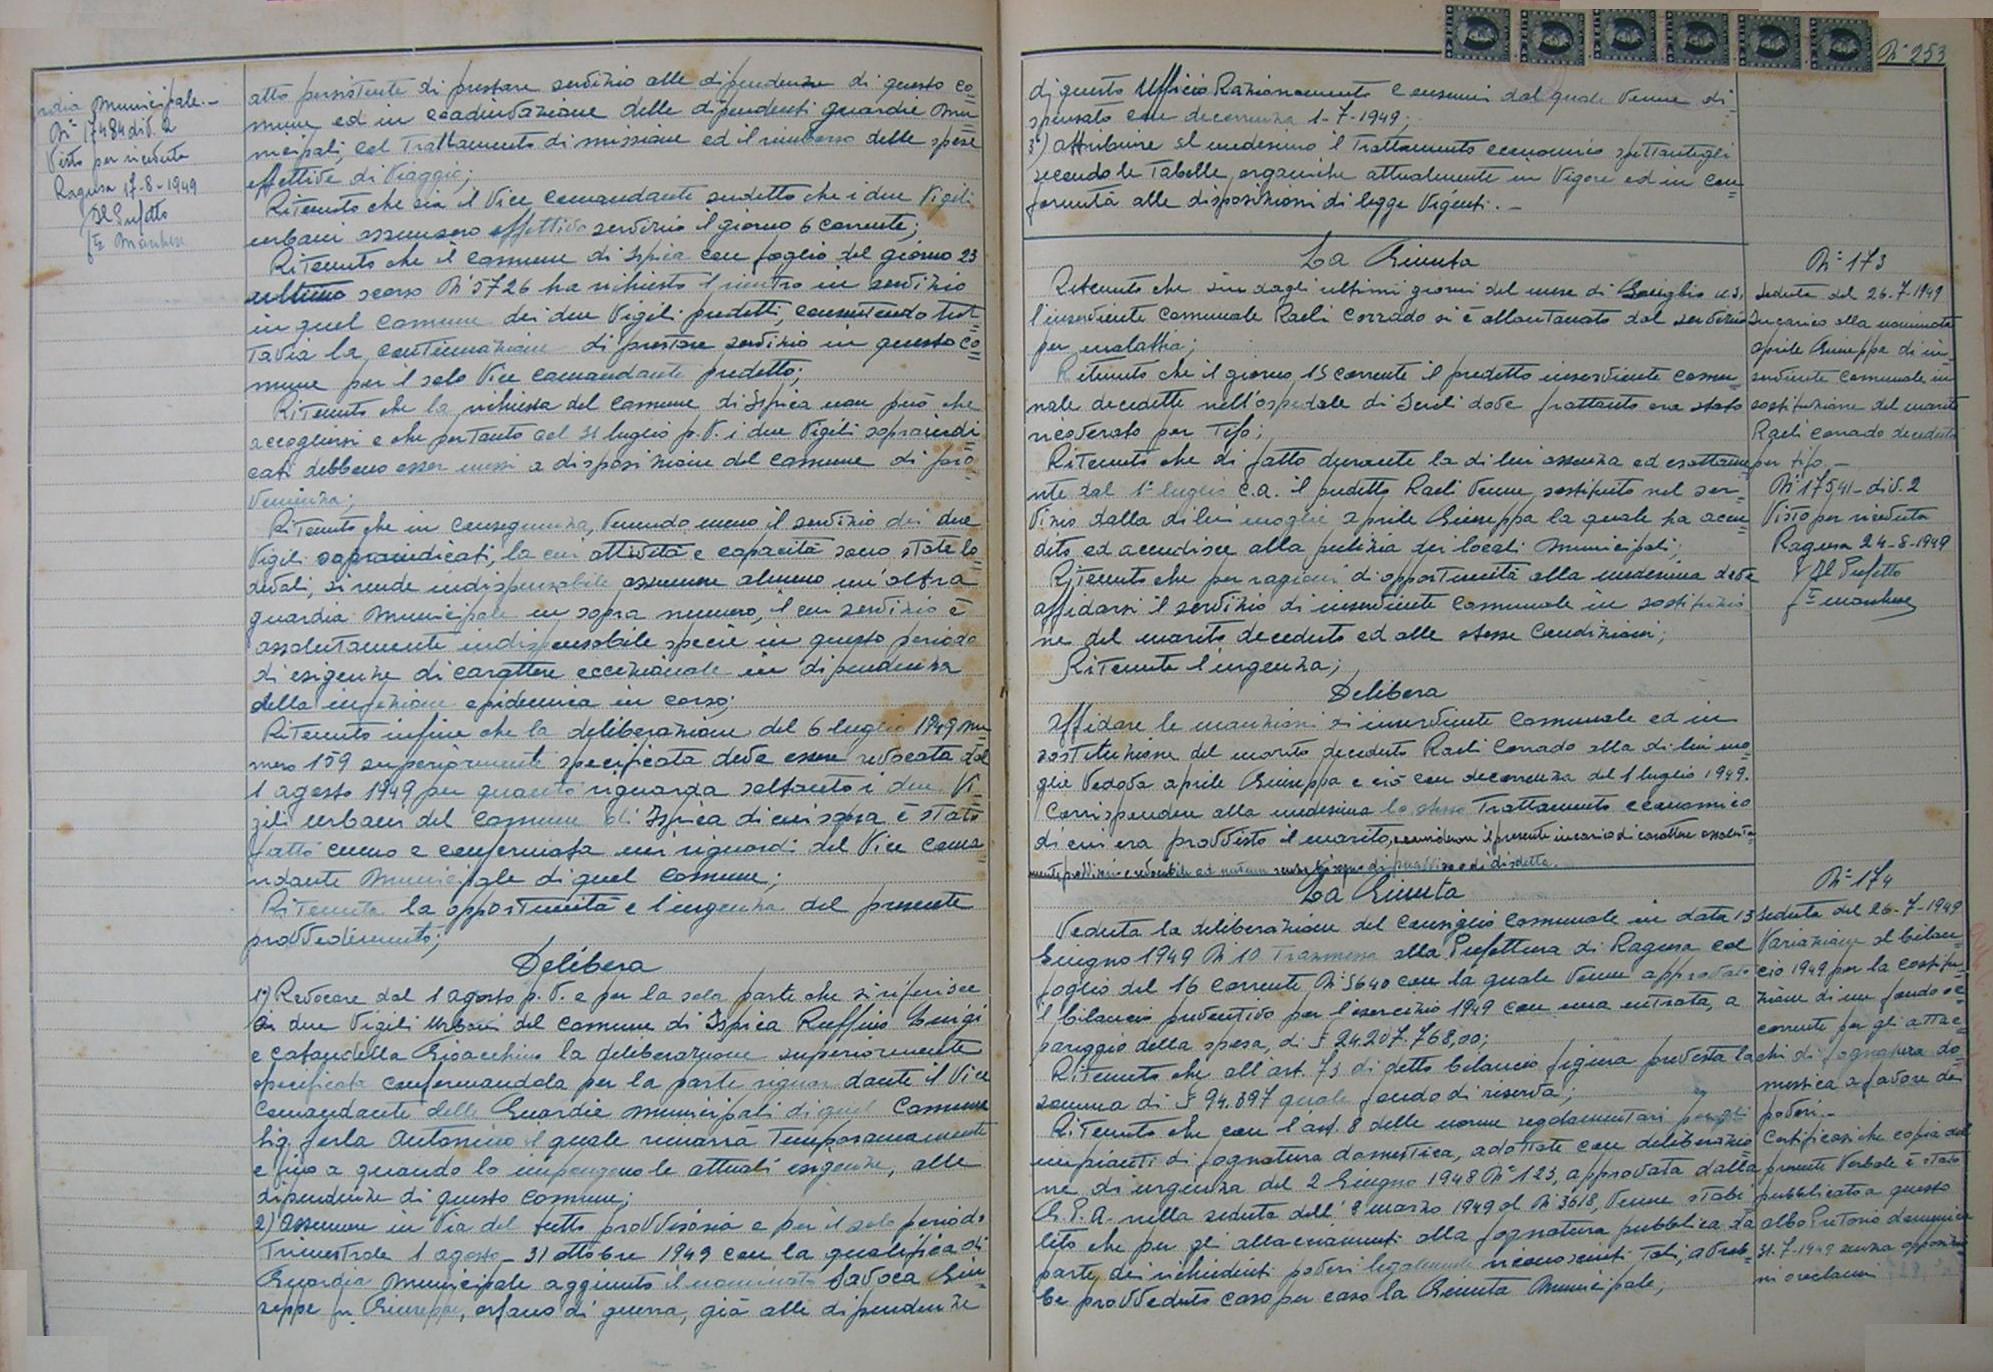 rdia Municipale.-
N° 17484 div. 2
Visto per ricevuta
Ragusa 17-8-1949
Il Prefetto
atto persistente di prestare servizio alle dipendenze di questo co=
mune ed in coadiuvazione delle dipendenti guardie mu=
nicipali, col Trattamento di missione ed il rimborso delle spese
effettive di Viaggio;
Ritenuto che sia il Vice Comandante suddetto che i due Vigili
urbani assunsero effettivo servizio il giorno 6 corrente;
Ritenuto che il comune di Ispica con foglio del giorno 23
ultimo scorso N° 5726 ha richiesto il rientro in servizio
in quel Comune dei due Vigili predetti, consentendo tut=
tavia la continuazione di prestare servizio in questo co=
mune per il solo Vice Comandante predetto;
Ritenuto che la richiesta del Comune di Ispica non può che
accogliersi e che pertanto col 31 luglio p.V. i due Vigili sopraindi=
cati debbono esser messi a disposizione del Comune di pro=
venienza;
Ritenuto che in conseguenza, Venendo meno il servizio dei due
Vigili sopraindicati, la cui attività e capacità sono state lo=
devoli, si rende indispensabile assumere almeno un'altra
guardia Municipale in sopra numero, il cui servizio è
assolutamente indispensabile specie in questo periodo
di esigenze di carattere eccezionale in dipendenza
della infezione epidemica in corso;
Ritenuto infine che la deliberazione del 6 luglio 1949 nu=
mero 159 superiormente specificata deve essere revocata dal
1 agosto 1949 per quanto riguarda soltanto i due Vi=
gili urbani del Comune di Ispica di cui sopra è stato
fatto cenno e confermata nei riguardi del Vice Coma=
ndante Municipale di quel Comune;
Ritenuta la opportunità e l'urgenza del presente
provvedimento;
Delibera
1°) Revocare dal 1 agosto p.V. e per la sola parte che si riferisce
ai due Vigili Urbani del Comune di Ispica Ruffino Luigi
e Gioacchino la deliberazione superiormente
specificata confermandola per la parte riguardante il Vice
Comandante delle Guardie Municipali di quel Comune
Sig. Ferla Antonino il quale rimarrà Temporaneamente
e fino a quando lo impongono le attuali esigenze, alle
dipendenze di questo Comune;
2) Assumere in Via del tutto provvisoria e per il solo periodo
Trimestrale 1 agosto - 31 ottobre 1949 con la qualifica di
Guardia Municipale aggiunto il nominato Savoca Giu=
seppe fu Giuseppe, orfano di guerra, già alle dipendenze
N° 253
di questo Ufficio Razionamento e consumi dal quale Venne di=
spensato con decorrenza 1-7-1949;
3°) Attribuire al medesimo il Trattamento economico spettantegli
secondo le Tabelle organiche attualmente in Vigore ed in con=
formità alle disposizioni di legge Vigenti.-
La Giunta
Ritenuto che sin dagli ultimi giorni del mese di Giugno u.s.
l'inserviente Comunale Raeli Corrado si è allontanato dal servizio
per malattia;
Ritenuto che il giorno 15 corrente il predetto inserviente comu=
nale decedette nell'ospedale di Scicli dove frattanto era stato
ricoverato per Tifo;
Ritenuto che di fatto durante la di lui assenza ed esattame=
nte dal 1° luglio c.a. il predetto Raeli Venne sostituito nel ser=
vizio dalla di lui moglie Aprile Giuseppa la quale ha accu=
dito ed accudisce alla pulizia dei locali Municipali;
Ritenuto che per ragioni d'opportunità alla medesima deve
affidarsi il servizio di inserviente Comunale in sostituzio
ne del marito deceduto ed alle stesse Condizioni;
Ritenuta l'urgenza;
Delibera
Affidare le mansioni di inserviente Comunale ed in
sostituzione del marito deceduto Raeli Corrado alla di lui mo=
glie Vedova Aprile Giuseppa e ciò con decorrenza del 1 luglio 1949.
Corrispondere alla medesima lo stesso Trattamento economico
di cui era provvisto il marito, il presente incarico di carattere assoluta=
mente provvisorio e revocabile ad nutum senza bisogno di preavviso e di disdetta.
La Giunta
Veduta la deliberazione del Consiglio Comunale in data 13
Giugno 1949 N° 10 Trasmessa alla Prefettura di Ragusa col
foglio del 16 corrente N° 5640 con la quale Venne approvato
il bilancio preventivo per l'esercizio 1949 con una entrata, a
pareggio della spesa, di £ 24.207.768,00;
Ritenuto che all'art. 73 di detto bilancio figura prevista la
somma di £ 94.397 quale fondo di riserva;
Ritenuto che con l'art. 8 delle norme regolamentari per gli
impianti di fognatura domestica, adottate con deliberazio=
ne di urgenza del 2 Giugno 1948 N° 123, approvata dalla
G.P.A. nella seduta dell'8 marzo 1949 al N° 3618, Venne stabi=
lito che per gli allacciamenti alla fognatura pubblica da
parte dei richiedenti poveri legalmente riconosciuti Tali, avreb=
be provveduto caso per caso la Giunta Municipale;
N° 173
Seduta del 26-7-1949
Incarico alla nominata
Aprile Giuseppa di in=
serviente comunale in
sostituzione del marito
Raeli Corrado deceduto
per tifo.-
N° 17541 - div. 2
Visto per ricevuta
Ragusa 24-8-1949
Il Prefetto
N° 174
Seduta del 26-7-1949
Variazione al bilan=
cio 1949 per la costitu=
zione di un fondo oc=
corrente per gli attac=
chi di fognatura do=
mestica a favore dei
poveri.-
Certificasi che copia del
presente Verbale è stato
pubblicato a questo
albo Pretorio domenica
31-7-1949 senza opposizio
ni o reclami